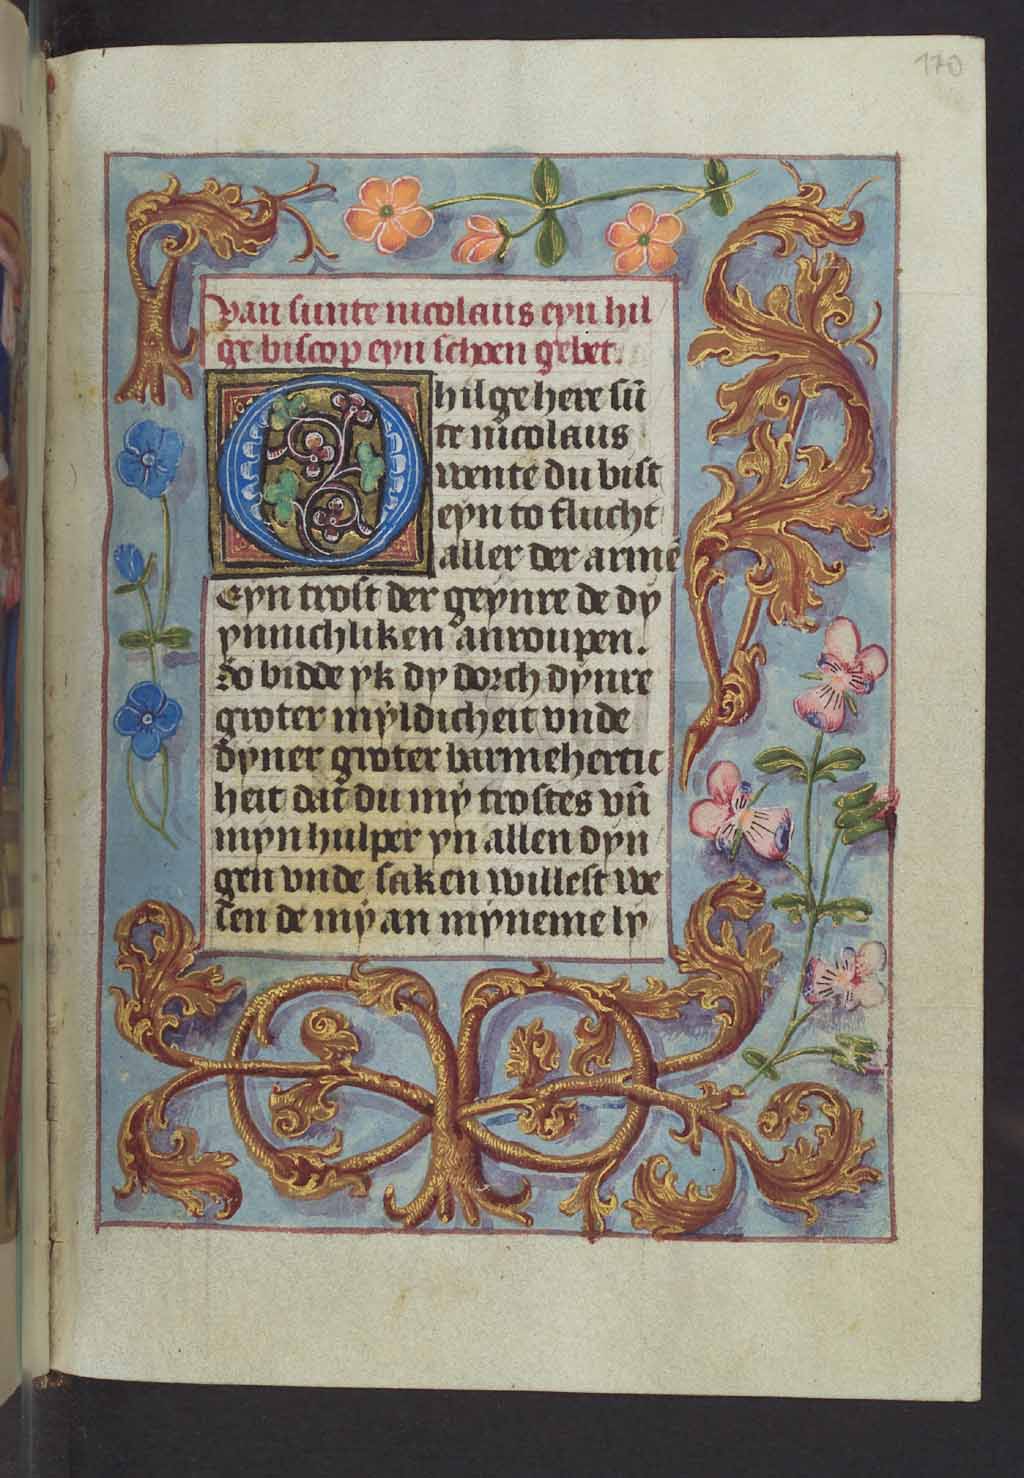 170
Van sunte nicolaus eyn hil
ge biscop eyn schoen gebet.
O hilge here sūn
te nicolaus
wente du bist
eyn to flucht
aller der armē
Eyn trost der geynre de dy
ynnichliken anroupen.
So bidde yk dy dorch dynre
groter myldicheit vnde
dyner groter barmehertic
heit dat du mȳ trostes vn̄
myn hulper yn allen dyn
gen vnde saken willest we
sen de mȳ an myneme ly